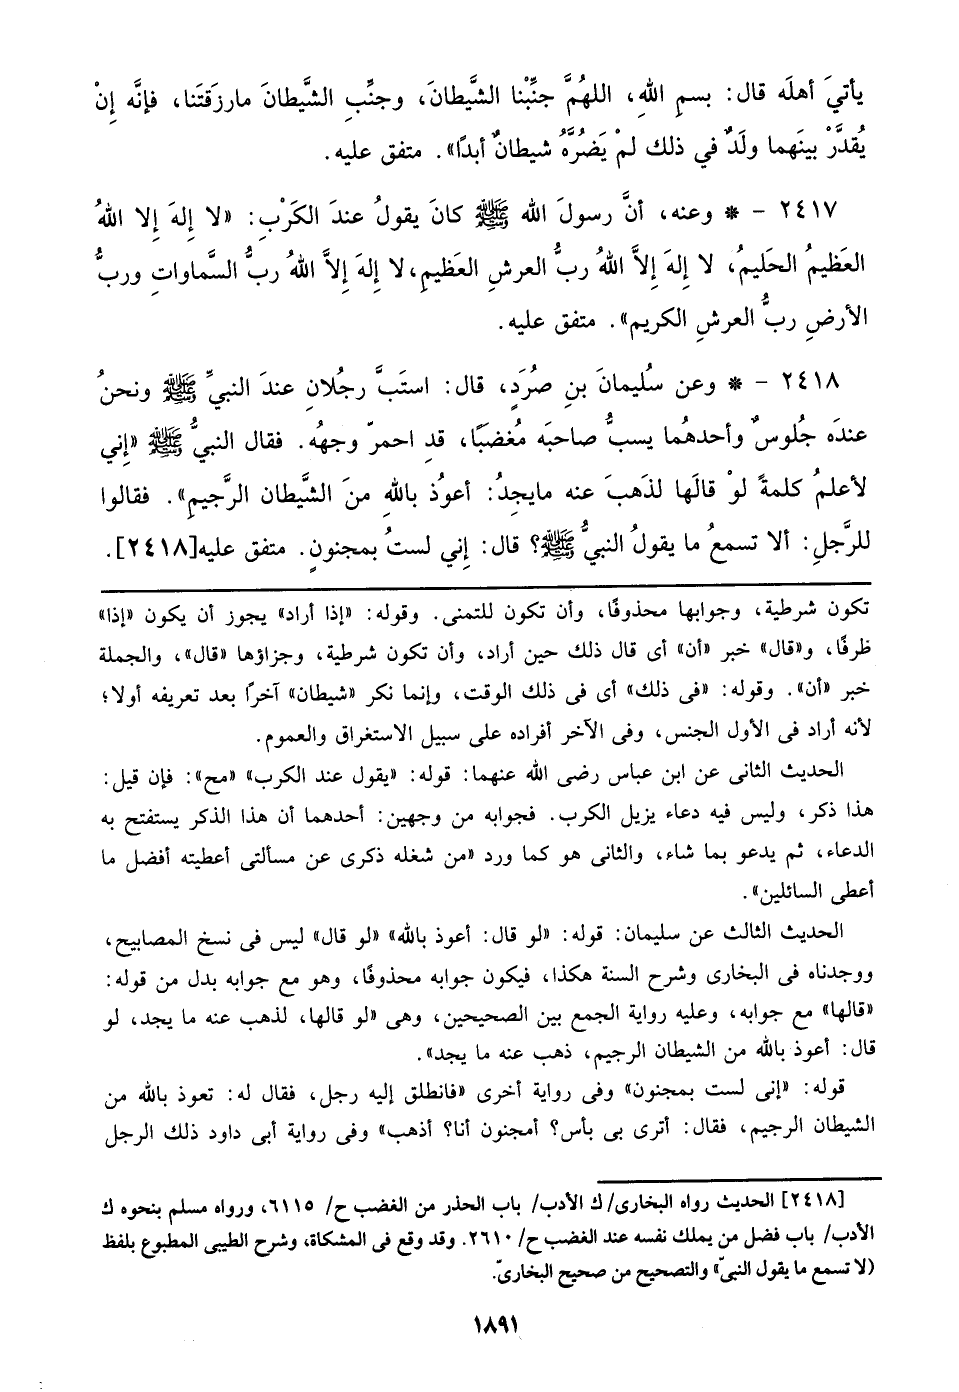 يأتيَ أهلَه قال: بسمِ اللهِ، اللهُمَّ جنِّبْنا الشَّيطانَ، وجنِّبِ الشيطانَ مارزَقتَنا، فإنَّه إنْ
يُقدَّرْ بينَهما ولَدٌ في ذلك لمْ يَضُرَّهُ شيطانٌ أبدًا». متفق عليه.
٢٤١٧ - * وعنه، أنَّ رسولَ الله ﷺ كانَ يقولُ عندَ الكَرْبِ: «لا إلهَ إلا اللهُ
العَظيمُ الحَليمُ، لا إلهَ إلاَّ اللهُ ربُّ العرشِ العَظيمِ،لا إلهَ إلاَّ اللهُ ربُّ السَّماواتِ وربُّ
الأرضِ ربُّ العرشِ الكريم». متفق عليه.
٢٤١٨ - * وعن سُليمانَ بنِ صُرَدٍ، قال: استَبَّ رجُلانِ عندَ النبيِّ ﷺ ونحنُ
عندَه جُلوسٌ وأحدهُما يسبُّ صاحبَه مُغضَبًا، قدِ احمرّ وجهُه. فقال النبيُّ ﷺ «إني
لأعلمُ كلمةً لوْ قالَها لذهَبَ عنه مايجدُ: أعوُذ باللهِ منَ الشَّيطان الرَّجيمِ». فقالوا
للرَّجلِ: ألا تسمعُ ما يقولُ النبيُّ ﷺ؟ قال: إني لستُ بمجنونٍ. متفق عليه[٢٤١٨].
تكون شرطية، وجوابها محذوفًا، وأن تكون للتمنى. وقوله: «إذا أراد» يجوز أن يكون «إذا»
ظرفًا، و«قال» خبر «أن» أى قال ذلك حين أراد، وأن تكون شرطية، وجزاؤها «قال»، والجملة
خبر «أن». وقوله: «فى ذلك» أى فى ذلك الوقت، وإنما نكر «شيطان» آخرًا بعد تعريفه أولا؛
لأنه أراد فى الأول الجنس، وفى الآخر أفراده على سبيل الاستغراق والعموم.
الحديث الثانى عن ابن عباس رضى الله عنهما: قوله: «يقول عند الكرب» «مح»: فإن قيل:
هذا ذكر، وليس فيه دعاء يزيل الكرب. فجوابه من وجهين: أحدهما أن هذا الذكر يستفتح به
الدعاء، ثم يدعو بما شاء، والثانى هو كما ورد «من شغله ذكرى عن مسألتى أعطيته أفضل ما
أعطى السائلين».
الحديث الثالث عن سليمان: قوله: «لو قال: أعوذ بالله» «لو قال» ليس فى نسخ المصابيح،
ووجدناه فى البخارى وشرح السنة هكذا، فيكون جوابه محذوفًا، وهو مع جوابه بدل من قوله:
«قالها» مع جوابه، وعليه رواية الجمع بين الصحيحين، وهى «لو قالها، لذهب عنه ما يجد، لو
قال: أعوذ بالله من الشيطان الرجيم، ذهب عنه ما يجد».
قوله: «إنى لست بمجنون» وفى رواية أخرى «فانطلق إليه رجل، فقال له: تعوذ بالله من
الشيطان الرجيم، فقال: أترى بى بأس؟ أمجنون أنا؟ أذهب» وفى رواية أبى داود ذلك الرجل
[٢٤١٨] الحديث رواه البخارى/ ك الأدب/ باب الحذر من الغضب ح/ ٦١١٥، ورواه مسلم بنحوه ك
الأدب/ باب فضل من يملك نفسه عند الغضب ح/ ٢٦١٠. وقد وقع فى المشكاة، وشرح الطيبى المطبوع بلفظ
(لا تسمع ما يقول النبىّ» والتصحيح من صحيح البخارىّ.
١٨٩١